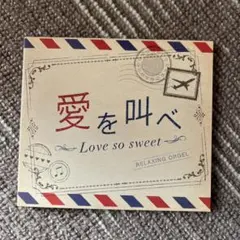 愛を叫べ
Love so sweet
RELAXING ORGEL